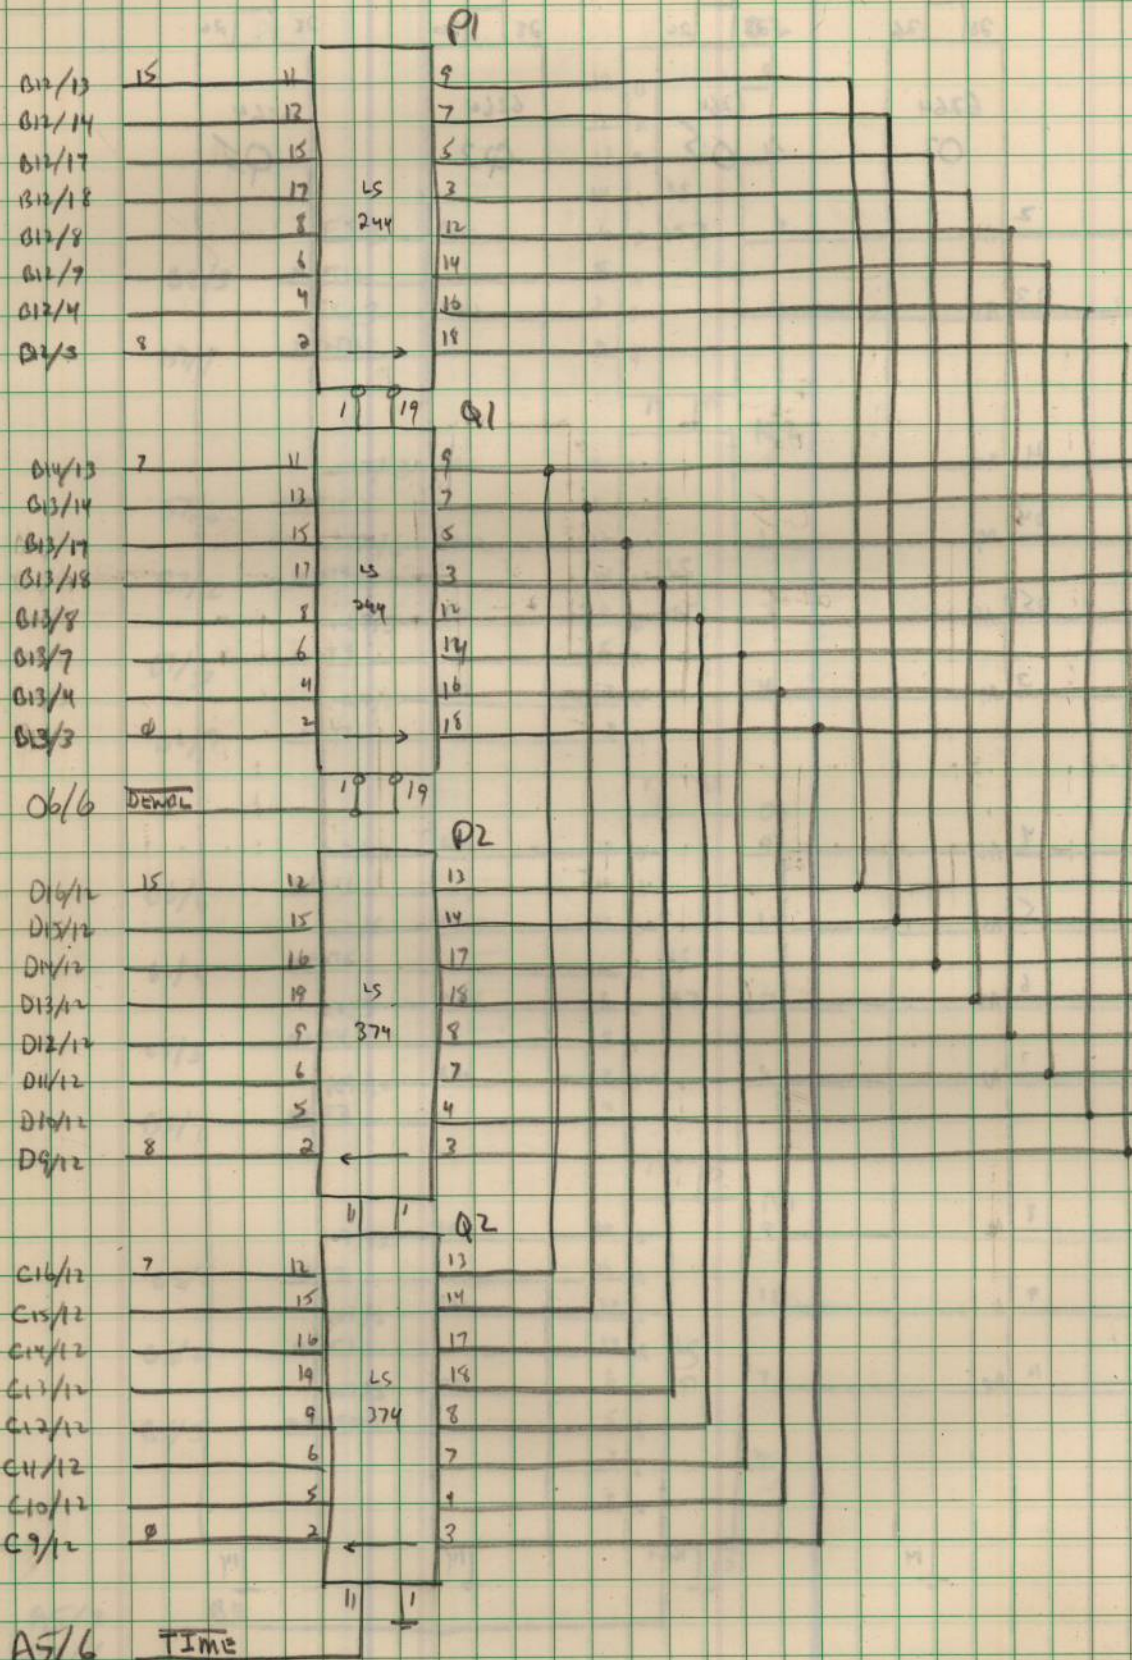 P1
B12/13 15 11 9
B12/14 13 7
B12/17 15 5
B12/18 17 LS 3
B12/8 8 244 12
B12/7 6 14
B12/4 4 16
8 2 18
1 19 Q1
7 11 9
B13/14 13 7
B13/17 15 5
B13/18 17 LS 3
B13/8 8 244 12
B13/7 6 14
B13/4 4 16
B13/3 ∅ 2 18
1 19
06/6
P2
D16/12 15 12 13
D15/12 15 14
D14/12 16 17
D13/12 19 LS 18
D12/12 9 374 8
D11/12 6 7
D10/12 5 4
D9/12 8 2 3
11 1 Q2
C16/12 7 12 13
C15/12 15 14
C14/12 16 17
C13/12 19 LS 18
C12/12 9 374 8
C11/12 6 7
C10/12 5 4
C9/12 ∅ 2 3
11 1
A5/6 TIME